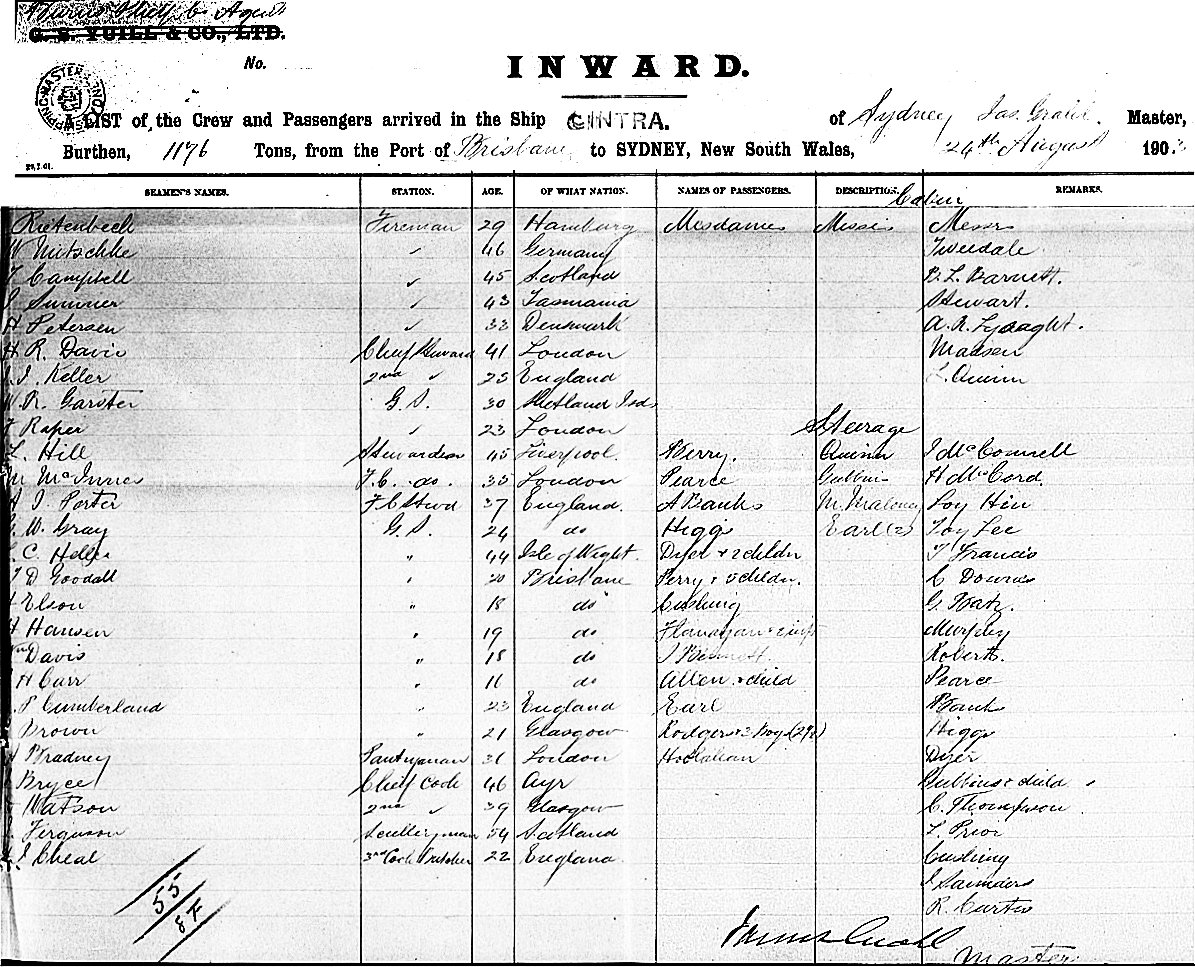 Burns Philp Co Agents
G. S. YUILL & CO., LTD.
No.
INWARD.
SHIPPING MASTER
A LIST of the Crew and Passengers arrived in the Ship CINTRA. of Sydney Jas. Grahl. Master,
Burthen, 1176 Tons, from the Port of Brisbane to SYDNEY, New South Wales, 24th August 190
SEAMEN'S NAMES. STATION. AGE. OF WHAT NATION. NAMES OF PASSENGERS. DESCRIPTION. REMARKS.
Cabin
Rietenbech Fireman 29 Hamburg Mesdames Misses Messrs
W Nutschke " 46 Germany Tweedale
Campbell " 45 Scotland B. L. Barnett.
Sumner " 43 Tasmania Stewart.
H Petersen " 33 Denmark A. R. Lysaght.
H R. Davis Chief Steward 41 London Madsen
J. Keller 2nd " 25 England L. Quinn
W. R. G.S. 30 Shetland Isds
F Raper " 23 London Steerage
L. Hill Stewardess 45 Liverpool. Berry. Quinn J McConnell
M F.C. do. 35 London Pearce Gubbins H McCord.
H J. Porter F C Stwd 37 England. A Banks M. Maloney Loy Hin
W. Gray G.S. 24 do Higgs Earl (2) Loy Lee
C. " 44 Isle of Wight. Dyer & 2 childn Francis
D Goodall " 20 Brisbane Perry & 3 childn. C Downes
Elson " 18 do Cushing G. Batz.
H Hansen " 19 do Flanagan & inft Murphy
Wm Davis " 18 do J Bennett. Roberts.
H Carr " 11 do Allen & child Pearce
P Cumberland " 23 England Earl Banks
Brown " 21 Glasgow Rodgers & 2 Boys Higgs
H Bradney Pantryman 31 London Hoolahan Dyer
Bryce Chief Cook 46 Ayr Gubbins & child
Watson 2nd " 39 Glasgow C. Thompson
Ferguson Scullery man 54 Scotland L. Prior
J Cheal 3rd Cook Butcher 22 England Cushing
J Saunders
55 R. Curtis
87
James Grahl
Master